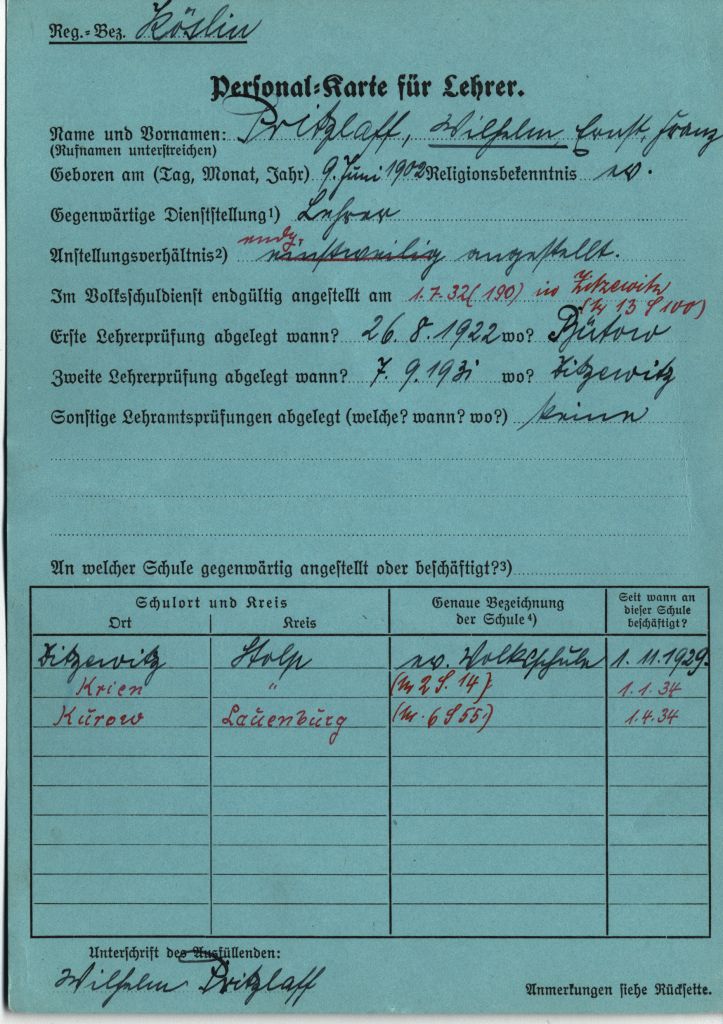 Reg.-Bez. Köslin
Personal-Karte für Lehrer.
Name und Vornamen: Pritzlaff, Wilhelm, Ernst, Franz
(Rufnamen unterstreichen)
Geboren am (Tag, Monat, Jahr) 9. Juni 1902 Religionsbekenntnis ev.
Gegenwärtige Dienststellung¹) Lehrer
endg.
Anstellungsverhältnis²) einstweilig angestellt.
Im Volksschuldienst endgültig angestellt am 1.7.32 (190) in Zitzewitz
(M 13 S 100)
Erste Lehrerprüfung abgelegt wann? 26.8.1922 wo? Bütow
Zweite Lehrerprüfung abgelegt wann? 7.9.1931 wo? Zitzewitz
Sonstige Lehramtsprüfungen abgelegt (welche? wann? wo?) keine
An welcher Schule gegenwärtig angestellt oder beschäftigt?³)
Schulort und Kreis
Ort Kreis
Genaue Bezeichnung
der Schule⁴)
Seit wann an
dieser Schule
beschäftigt?
Zitzewitz Stolp ev. Volksschule 1.11.1929.
Krien " (M 2 S. 14) 1.1.34
Kurow Lauenburg (M. 6 S 55.) 1.4.34
Unterschrift des Ausfüllenden:
Wilhelm Pritzlaff
Anmerkungen siehe Rückseite.